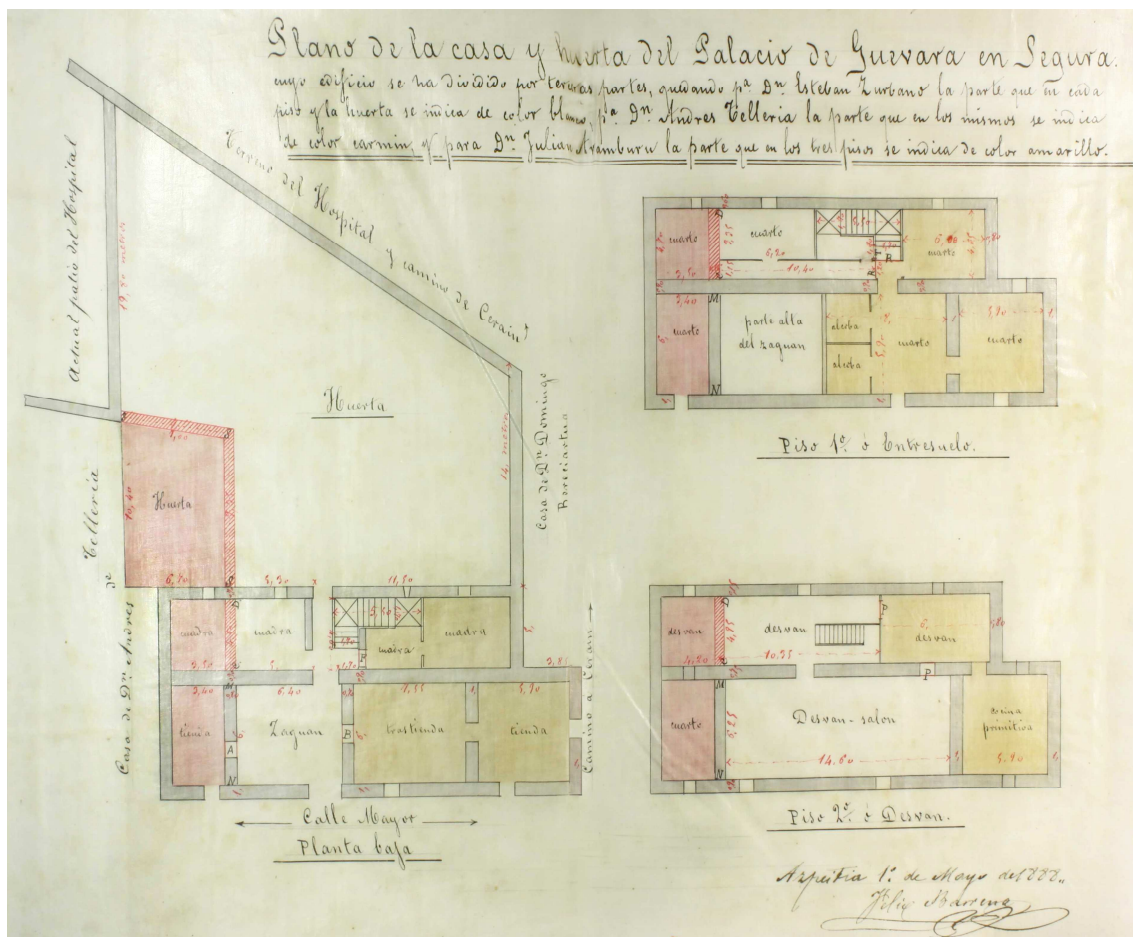 Plano de la casa y huerta del Palacio de Guevara en Segura.
cuyo edificio se ha dividido por terceras partes, quedando pª Dn Esteban Zurbano la parte que en cada
piso y la huerta se indica de color blanco, pª Dn Andres Telleria la parte que en los mismos se indica
de color carmin, y para Dn Julian Aramburu la parte que en los tres pisos se indica de color amarillo.
Actual patio del Hospital
19,90 metros
Terreno del Hospital y camino de Cerain
Huerta
14, metros
Casa de Dn Domingo
Huerta
10,40
Casa de Dn Andres de Telleria
6,80
5,90
11,50
cuadra
cuadra
5,40
cuadra
cuadra
3,50
D
F
3,40
6,40
1,55
5,90
3,85
tienda
Zaguan
trastienda
tienda
A
B
N
Camino a Cerain
Calle Mayor
Planta baja
cuarto
cuarto
6,20
10,40
cuarto
3,50
D
R
3,40
M
cuarto
parte alta
del zaguan
alcoba
alcoba
cuarto
5,90
cuarto
N
Piso 1º ó Entresuelo.
desvan
D
4,95
desvan
desvan
4,20
10,35
P
cuarto
M
6,25
Desvan-salon
14,60
cocina
primitiva
5,90
N
Piso 2º ó Desvan.
Azpeitia 1º de Mayo de 1888.
Felix Barrena